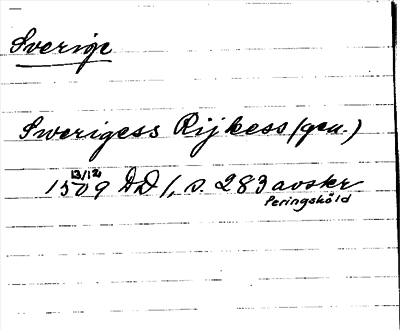 Sverige
Swerigess Rijkess (gen.)
13/12
1509 DD 1, s. 283 avskr
Peringsköld